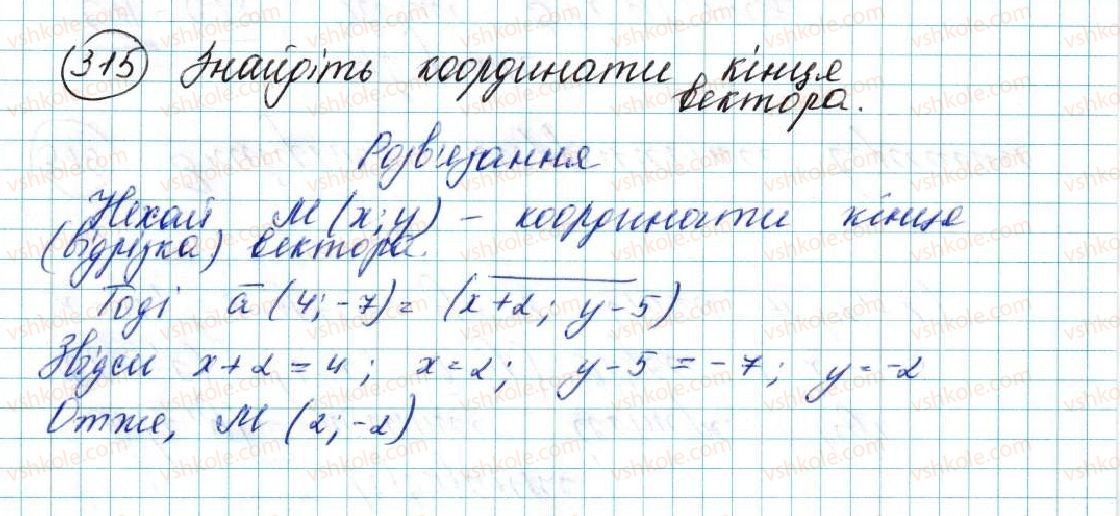 315 Знайдіть координати кінця
вектора.
Розв'язання
Нехай M(x;y) - координати кінця
(відрізка) вектора.
Тоді a̅ (4; -7) = (x+2; y-5)
Звідси x+2=4; x=2; y-5=-7; y=-2
Отже, M (2; -2)